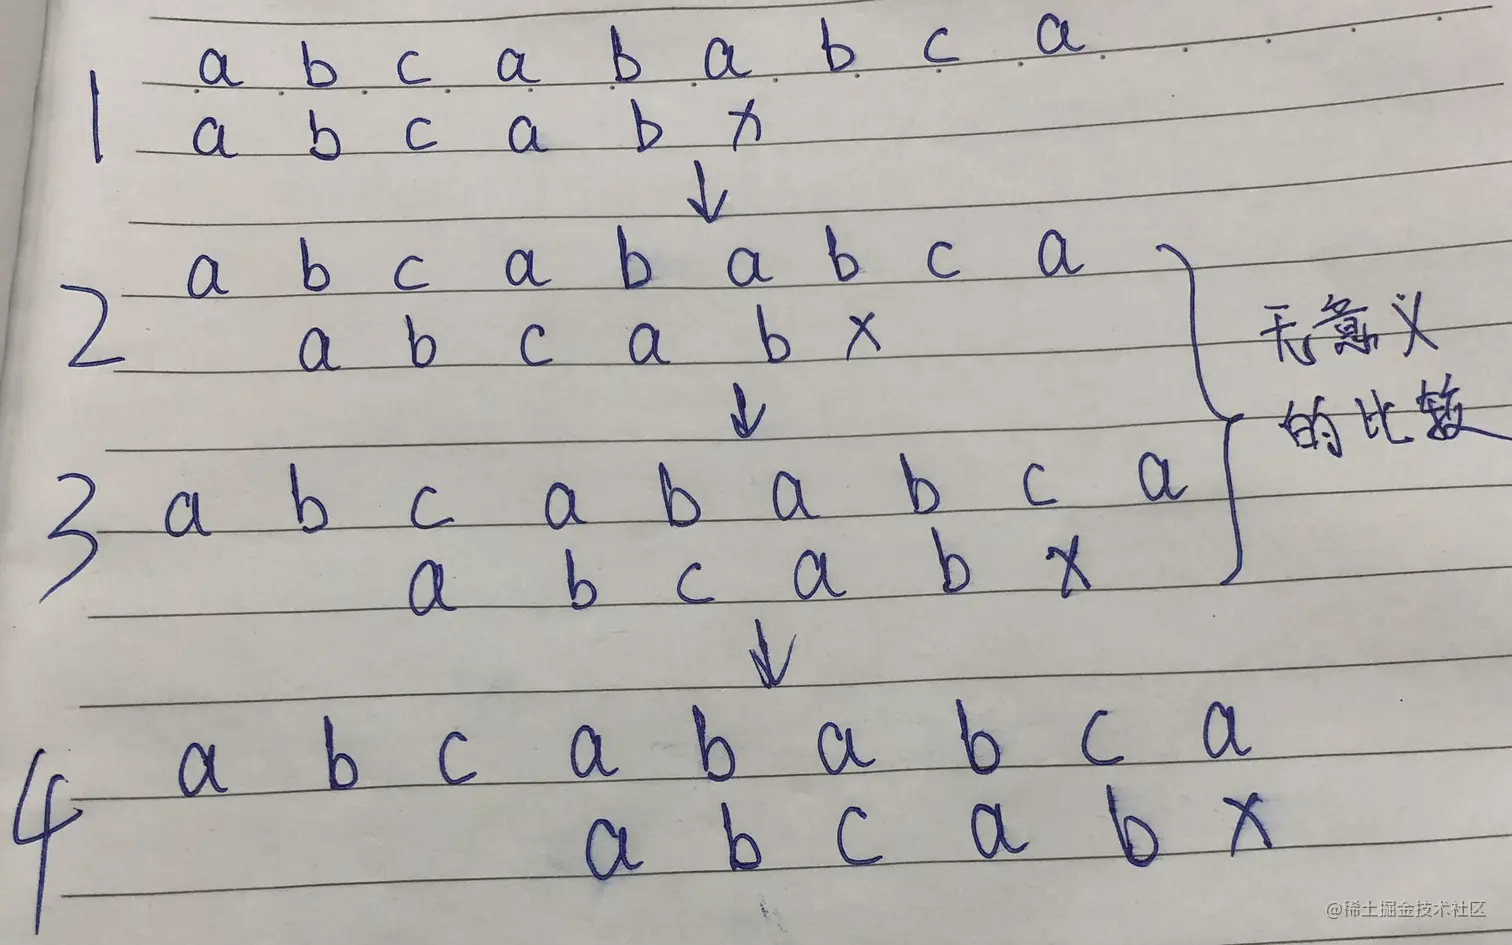 1
a b c a b a b c a
a b c a b x
↓
2
a b c a b a b c a
a b c a b x
↓
无意义
的比较
3
a b c a b a b c a
a b c a b x
↓
4
a b c a b a b c a
a b c a b x
@稀土掘金技术社区